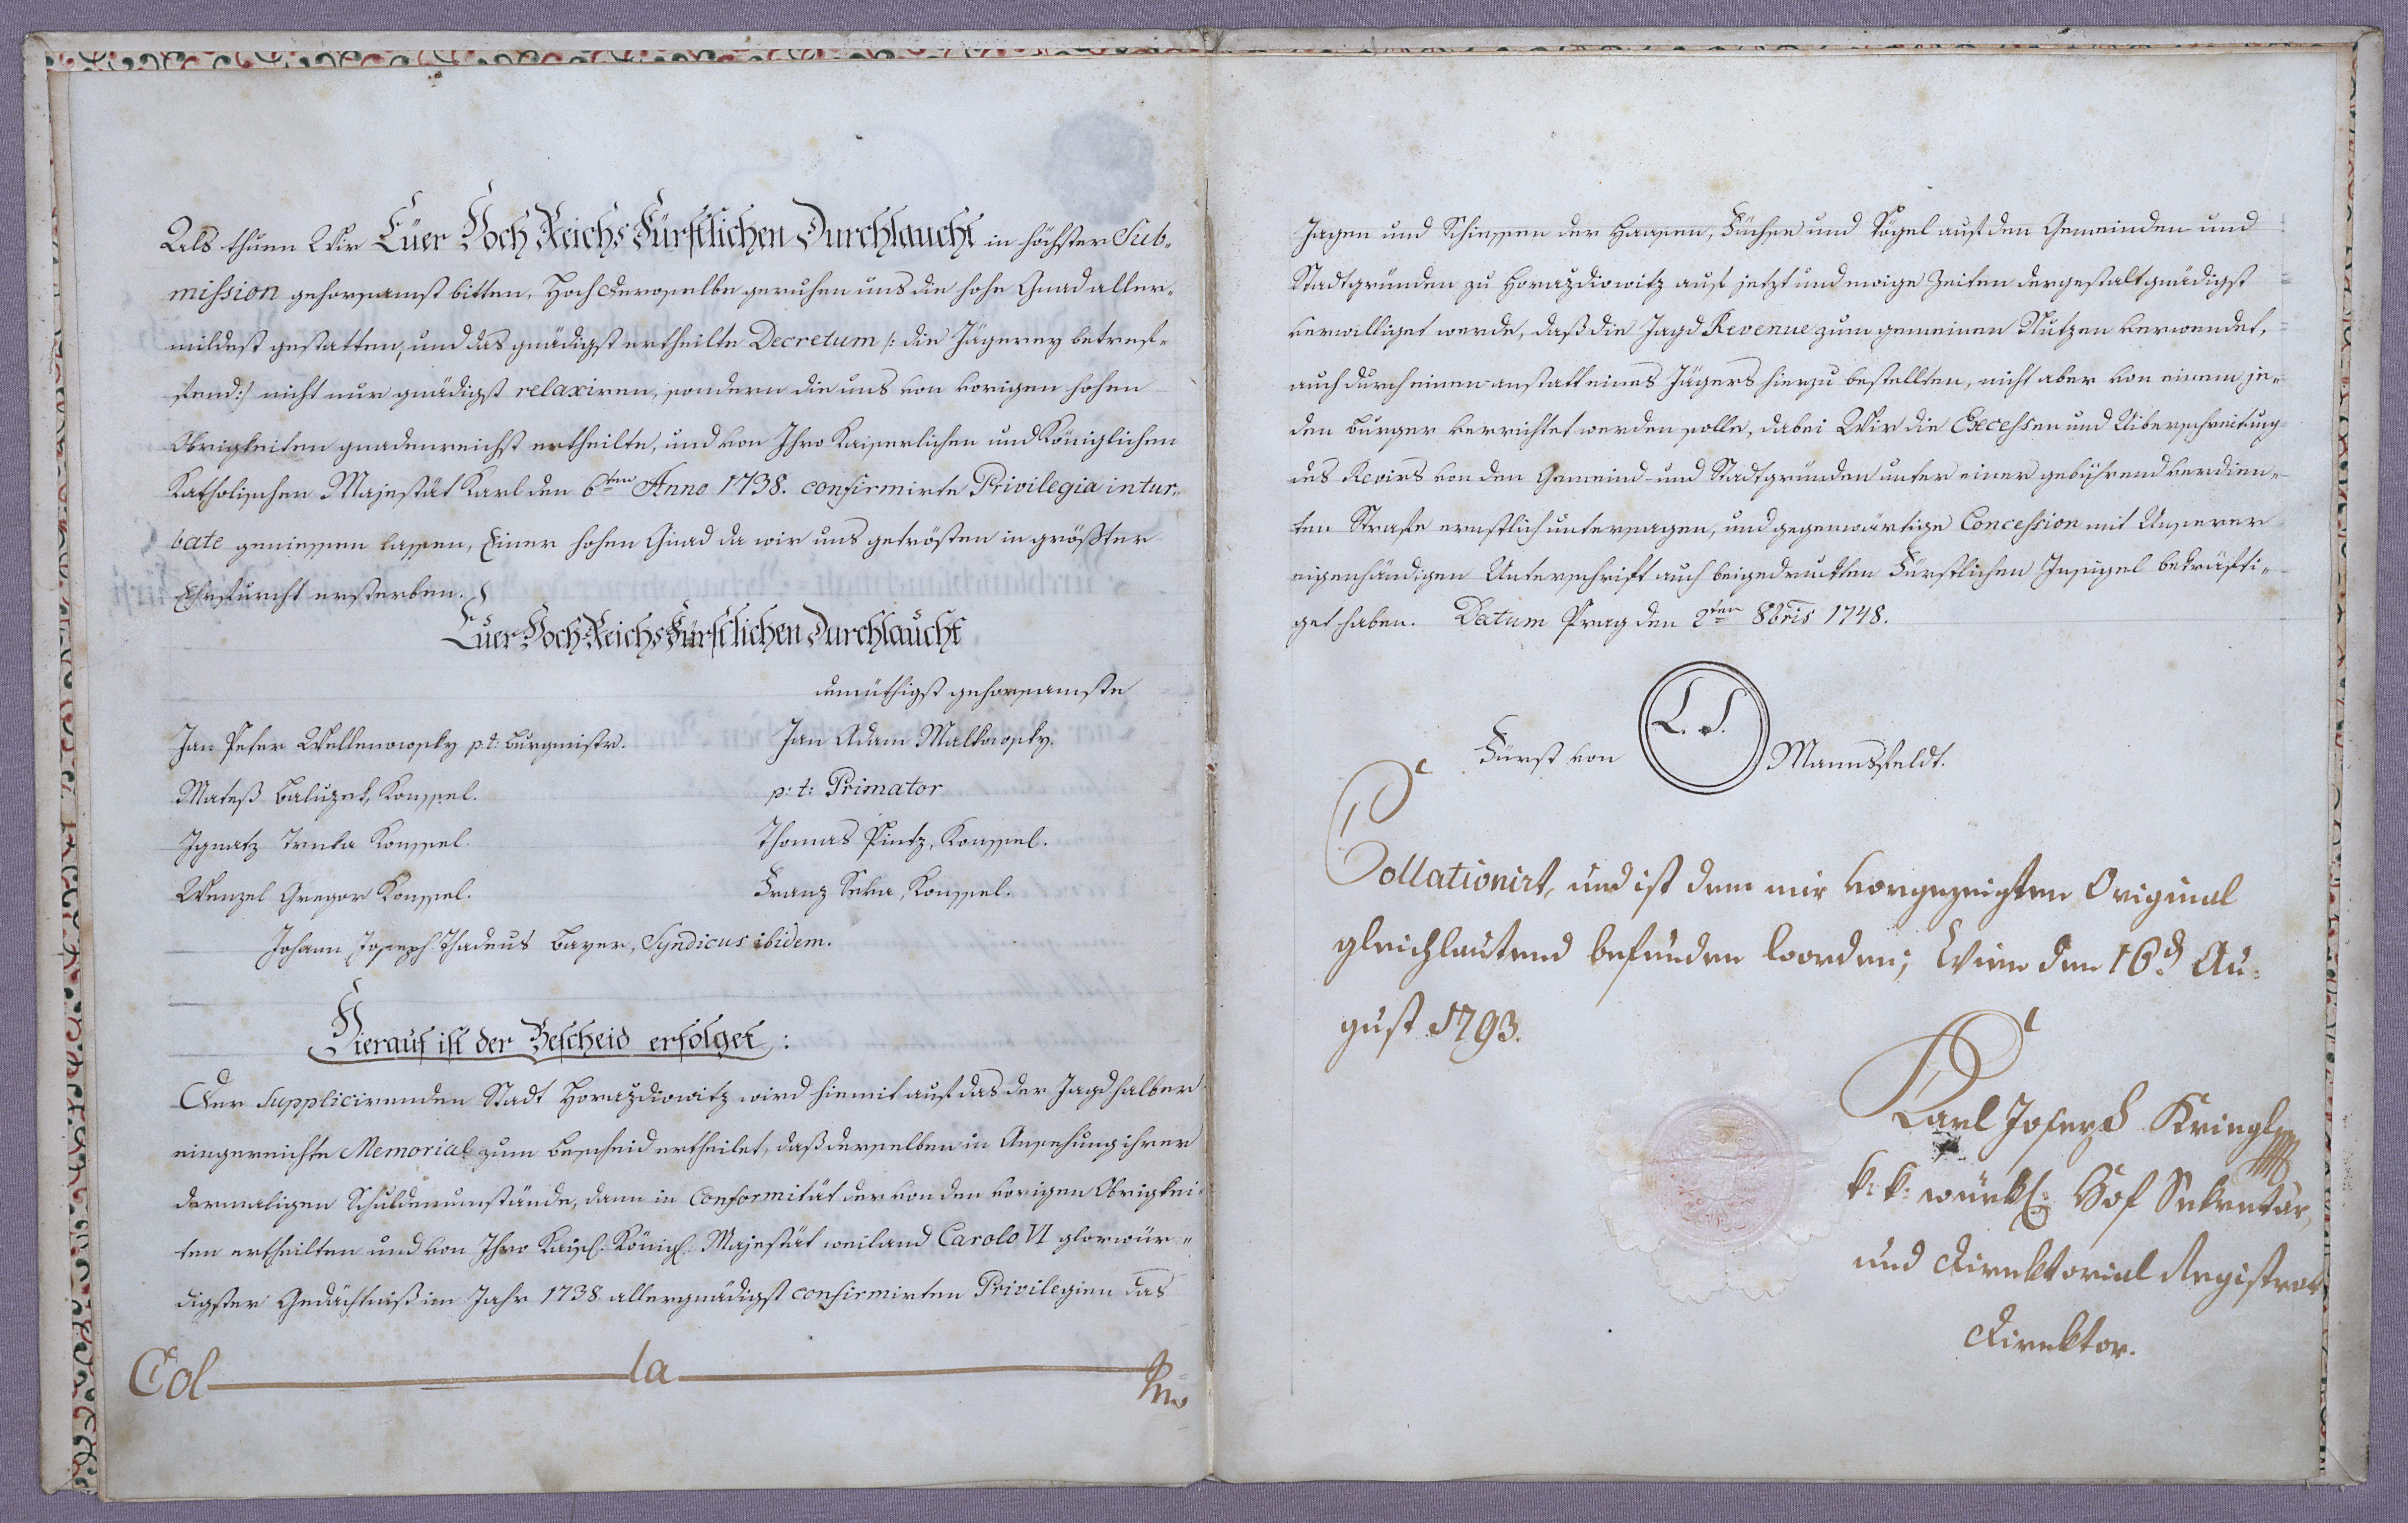 Als thuen Wir Eüer Hoch Reichs Fürstlichen Durchlaucht in höchster Sub-
mission gehorsamst bitten, Hoch Deroselbe geruhen uns die hohe Gnad aller-
mildest gestatten, und das gnädigst ertheilte Decretum /: die Jägerey betref-
fend :/ nicht nur gnädigst relaxiren, sondern die uns von vorigen hohen
Obrigkeiten gnadenreichst ertheilte, und von Ihro Kaiserlichen und Königlichen
Katholischen Majestät Karl den 6ten Anno 1738. confirmirte Privilegia intur-
bate geniessen lassen, Einer hohen Gnad da wir uns getrösten in größter
Ehrfurcht ersterben.
Euer Hoch Reichs Fürstlichen Durchlaucht
demüthigst gehorsamste
Jan Peter Wellenowsky p.t: Burgmistr.
Jan Adam Malkowsky.
p: t: Primator
Mateß Baluzek, Konssel.
Ignatz Trnka Konssel.
Thomas Pintz, Konssel.
Wenzel Gregor Konssel.
Franz Seka, Konssel.
Johann Joseph Thadeus Bayer, Syndicus ibidem.
Hierauf ist der Bescheid erfolget:
Der supplicirenden Stadt Horazdiowitz wird hiemit auf das der Jagd halber
eingereichte Memorial zum Bescheid ertheilet, daß derselben in Ansehung ihrer
dermaligen Schuldenumstände, dann in Conformität der von den vorigen Obrigkei-
ten ertheilten und von Ihro Kaisl. Königl. Majestät weiland Carolo VI glorwür-
digster Gedächtniß im Jahr 1738 allergnädigst confirmirten Privilegien das
Col la
Jagen und Schiessen der Haasen, Füchse und Vögel auf den Gemeinden und
Stadtgründen zu Horazdiowitz auf jetzt und ewige Zeiten dergestalt gnädigst
verwilliget werde, daß die Jagd Revenue zum gemeinen Nutzen verwendet,
auch durch einen anstatt eines Jägers hierzu bestellten, nicht aber von einem je-
den Burger verrichtet werden solle, dabei Wir die Excessen und Uiberschreitung
des Revirs von den Gemeind- und Stadtgründen unter einer gebührend verdien-
ten Strafe ernstlich untersagen, und gegenwärtige Concession mit Unserer
eigenhändigen Unterschrift auch beigedruckten Fürstlichen Insigel bekräfti-
get haben. Datum Prag den 2ten 8bris 1748.
Fürst von L. S. Mannsfeldt.
Collationirt, und ist dem mir vorgezeigten Original
gleichlautend befunden worden; Wien den 16d Au-
gust 1793.
Karl Joseph Kringl
k: k: würkl: Hof Sekretär,
und Direktorial Registrat
Direktor.